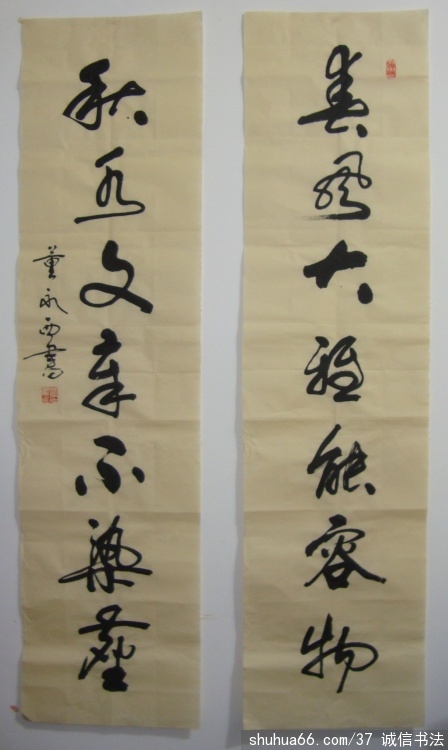 春风大雅能容物
秋水文章不染尘
董永西書
shuhua66.com/37 诚信书法